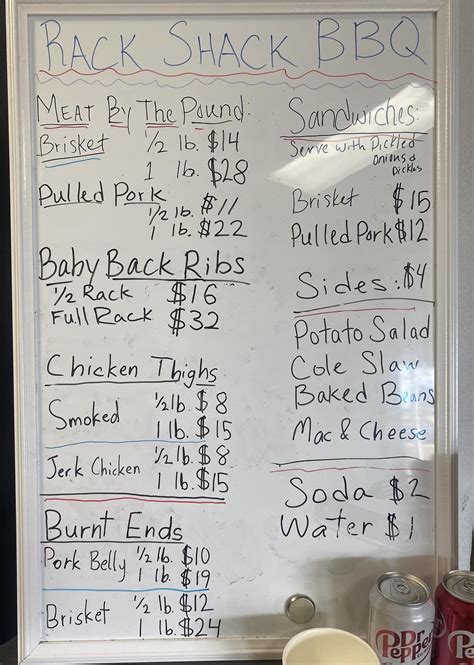 RACK SHACK BBQ
MEAT BY THE POUND:
Brisket 1/2 lb. $14
1 lb. $28
Pulled Pork
1/2 lb. $11
1 lb. $22
Baby Back Ribs
1/2 Rack $16
Full Rack $32
Chicken Thighs
Smoked 1/2 lb. $8
1 lb. $15
Jerk Chicken 1/2 lb. $8
1 lb. $15
Burnt Ends
Pork Belly 1/2 lb. $10
1 lb. $19
Brisket 1/2 lb. $12
1 lb. $24
Sandwiches:
Serve with Pickled
Onions &
Pickles
Brisket $15
Pulled Pork $12
Sides: $4
Potato Salad
Cole Slaw
Baked Beans
Mac & Cheese
Soda $2
Water $1
Dr
Pepper